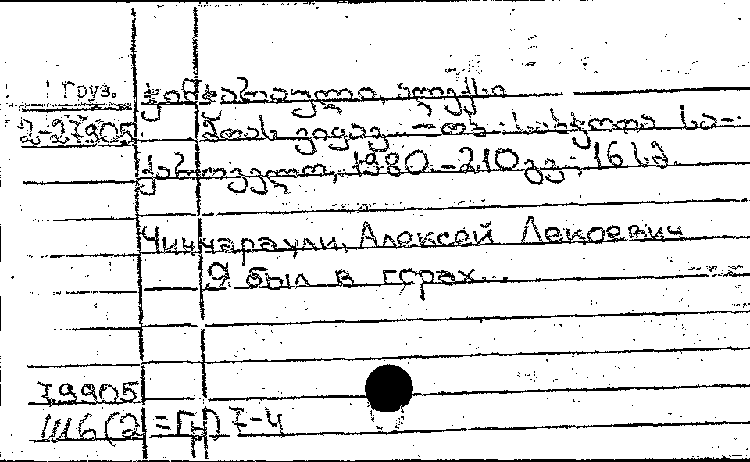 Груз.
2-27905
ჭინჭარაული, ალექსი
მთას ვიყავ. — თბ.: საბჭოთა სა-
ქართველო, 1980. — 210 გვ.; 16 სმ.
Чинчараули, Алексей Лекоевич
Я был в горах...
79905
Ш6(2=Гр)7-4